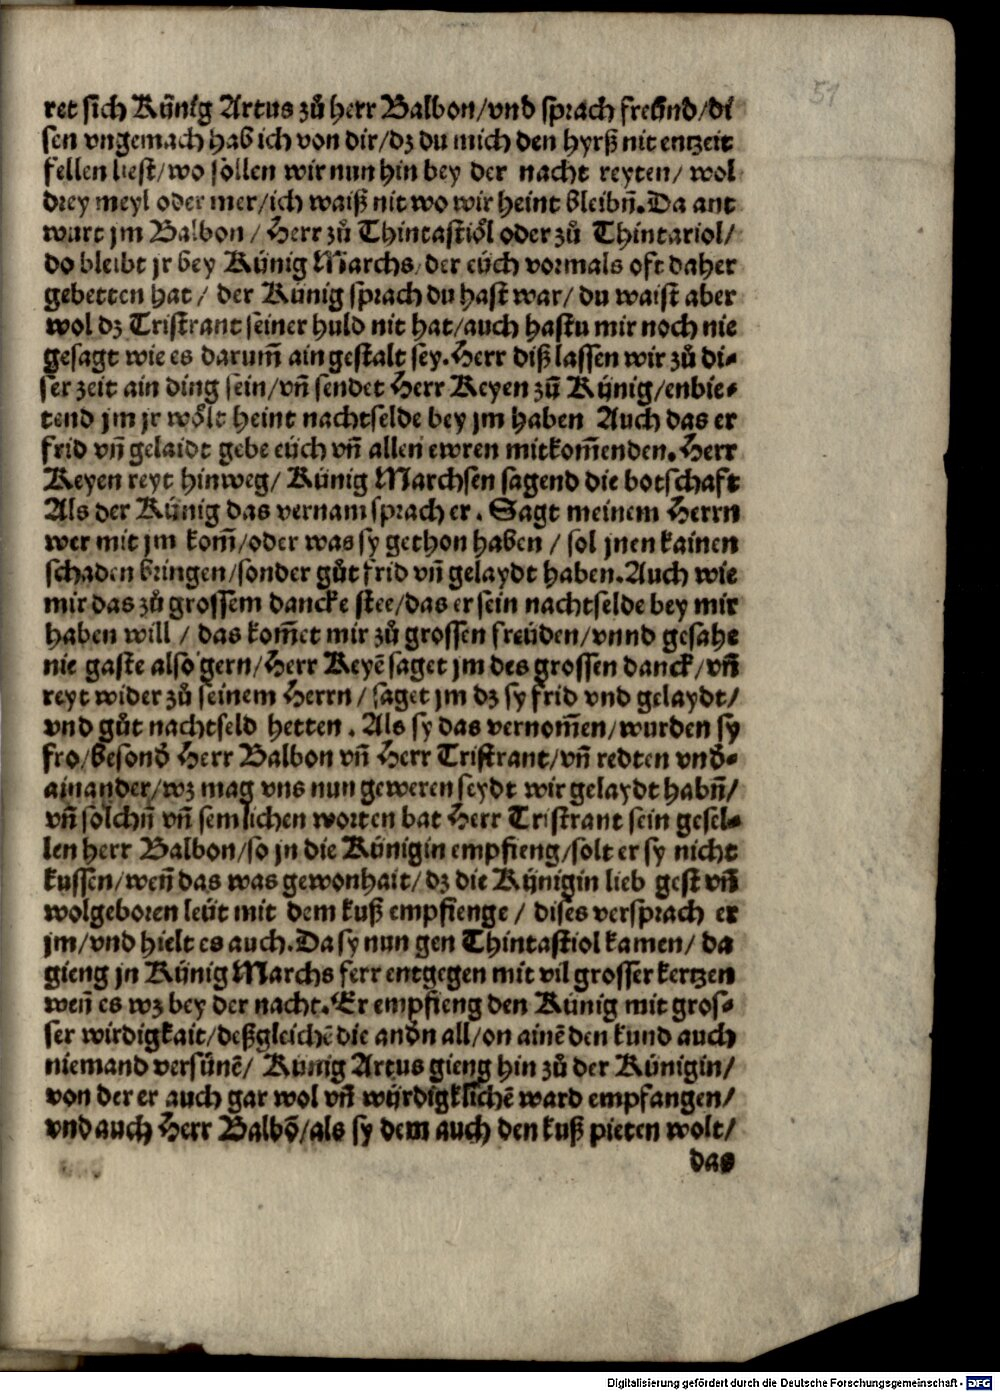 51
ret sich Künig Artus zů herr Balbon/vnd sprach freünd/di
sen vngemach hab ich von dir/dz du mich den hyrß nit entzeit
fellen liest/wo söllen wir nun hin bey der nacht reyten/ wol
drey meyl oder mer/ich waiß nit wo wir heint bleibñ. Da ant
wurt jm Balbon / Herr zů Thintastiöl oder zů Thintariol/
do bleibt jr bey Künig Marchs/der eüch vormals oft daher
gebetten hat / der Künig sprach du hast war/ du waist aber
wol dz Tristrant seiner huld nit hat/auch hastu mir noch nie
gesagt wie es darum̃ ain gestalt sey. Herr diß lassen wir zů di-
ser zeit ain ding sein/vñ sendet Herr Keyen zů Künig/enbie-
tend jm jr wölt heint nachtselde bey jm haben Auch das er
frid vñ gelaidt gebe eüch vñ allen ewren mitkom̃enden. Herr
Keyen reyt hinweg/ Künig Marchsen sagend die botschaft
Als der Künig das vernam sprach er. Sagt meinem Herrn
wer mit jm kom̃/oder was sy gethon haben / sol jnen kainen
schaden bringen/sonder gůt frid vñ gelaydt haben. Auch wie
mir das zů grossem dancke stee/das er sein nachtselde bey mir
haben will / das kom̃et mir zů grossen freüden/vnnd gesahe
nie gaste also gern/Herr Keyẽ saget jm des grossen danck/vñ
reyt wider zů seinem Herrn / saget jm dz sy frid vnd gelaydt/
vnd gůt nachtseld hetten. Als sy das vernom̃en/wurden sy
fro/besond̕ Herr Balbon vñ Herr Tristrant/vñ redten vnd̕-
ainander/wz mag vns nun geweren seydt wir gelaydt habñ/
vñ solchñ vñ semlichen worten bat Herr Tristrant sein gesel-
len herr Balbon/so jn die Künigin empfieng/solt er sy nicht
kussen/weñ das was gewonhait/dz die Künigin lieb gest vñ
wolgeboren leüt mit dem kuß empfienge / dises versprach er
jm/vnd hielt es auch. Da sy nun gen Thintastiol kamen/ da
gieng jn Künig Marchs ferr entgegen mit vil grosser kertzen
weñ es wz bey der nacht. Er empfieng den Künig mit gros-
ser wirdigkait/deßgleichẽ die and̕n all/on ainẽ den kund auch
niemand versünẽ/ Künig Artus gieng hin zů der Künigin/
von der er auch gar wol vñ würdigklichẽ ward empfangen/
vnd auch Herr Balbõ/als sy dem auch den kuß pieten wolt/
das
Digitalisierung gefördert durch die Deutsche Forschungsgemeinschaft - DFG